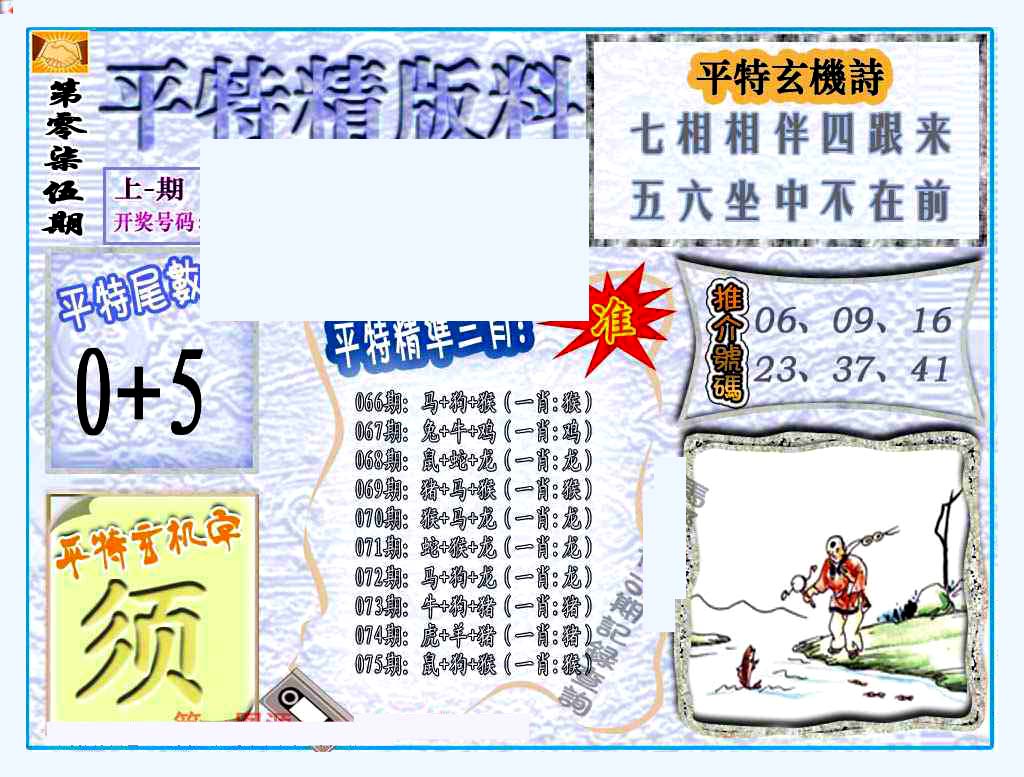 第零柒伍期
平特精版料
上-期
开奖号码:
平特玄機詩
七相相伴四跟来
五六坐中不在前
平特尾數
0+5
平特精準三肖!
准
推介號碼
06、09、16
23、37、41
066期: 马+狗+猴(一肖:猴)
067期: 兔+牛+鸡(一肖:鸡)
068期: 鼠+蛇+龙(一肖:龙)
069期: 猪+马+猴(一肖:猴)
070期: 猴+马+龙(一肖:龙)
071期: 蛇+猴+龙(一肖:龙)
072期: 马+狗+龙(一肖:龙)
073期: 牛+狗+猪(一肖:猪)
074期: 虎+羊+猪(一肖:猪)
075期: 鼠+狗+猴(一肖:猴)
期記録查詢
平特玄机字
须